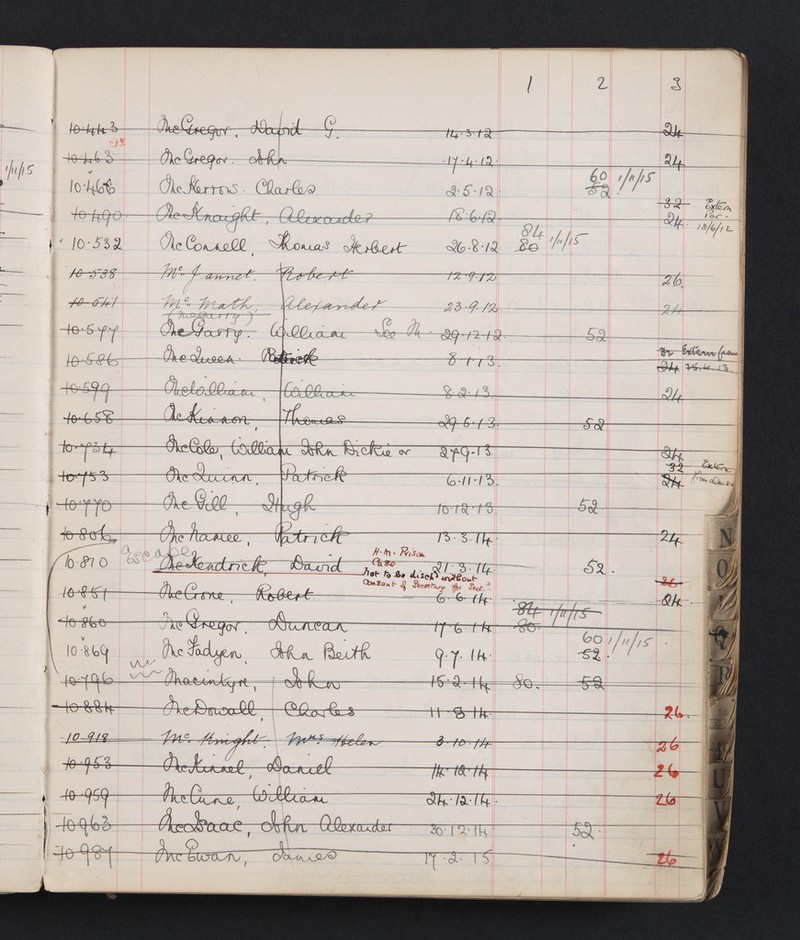 1 2 3
10443 McGregor, David G. 14.3.12 24
10463 McGregor. John 17.4.12 24
1/11/15
10.468 McKerrow. Charles 2.5.12 60 1/11/15 52
32 Extern
10490 McKnaight, Alexander 18.6.12 24 18/6/12
84 1/11/15
10.532 McConnell, Thomas Herbert 26.8.12 80
10.538 Mc Jannet. Robert 12.9.12 26.
10.541 Mc Math, Alexander 23.9.12 24
(megarry)
10.577 McGarry. William See M. 29.12.12 52
10.586 McQueen. Patrick 8.1.13. 32 Extern
24
10.599 McWilliam, William 8.2.13. 24
10.658 McKinnon, Thomas 29.5.13. 52
10.734 McCole, William John Dickie or 27.9.13 24
32 Extern
10.753 McQuinn, Patrick 6.11.13. 24
10.770 McGill, Hugh 10.12.13 52.
10.806 McNamee, Patrick 13.3.14. 24
Escape H.M. Prison
Case
10.810 McKendrick, David 21.3.14 52.
Not to be disch'd without
Consent of Secretary for Scot. 26
10.851 McCrone, Robert 6.6.14 24.
84 1/11/15
10.860 McGregor, Duncan 17.6.14 80.
60 1/11/15.
10.869 McFadyen, John Beith 9.7.14. 52.
10.796 Macintyre, John 15.2.14 80. 52
10.884 McDowall, Charles 11.8.14. 26.
10.918 Mc Knight, Mrs Helen 3.10.14 26
10.953 McKinnel, Daniel 14.12.14 26
10.959 McCune, William 24.12.14. 26
10963 McIsaac, John Alexander 30.12.14 52.
10987 McEwan, James 17.2.15 26
N
O
P
Q
R
U
V
W